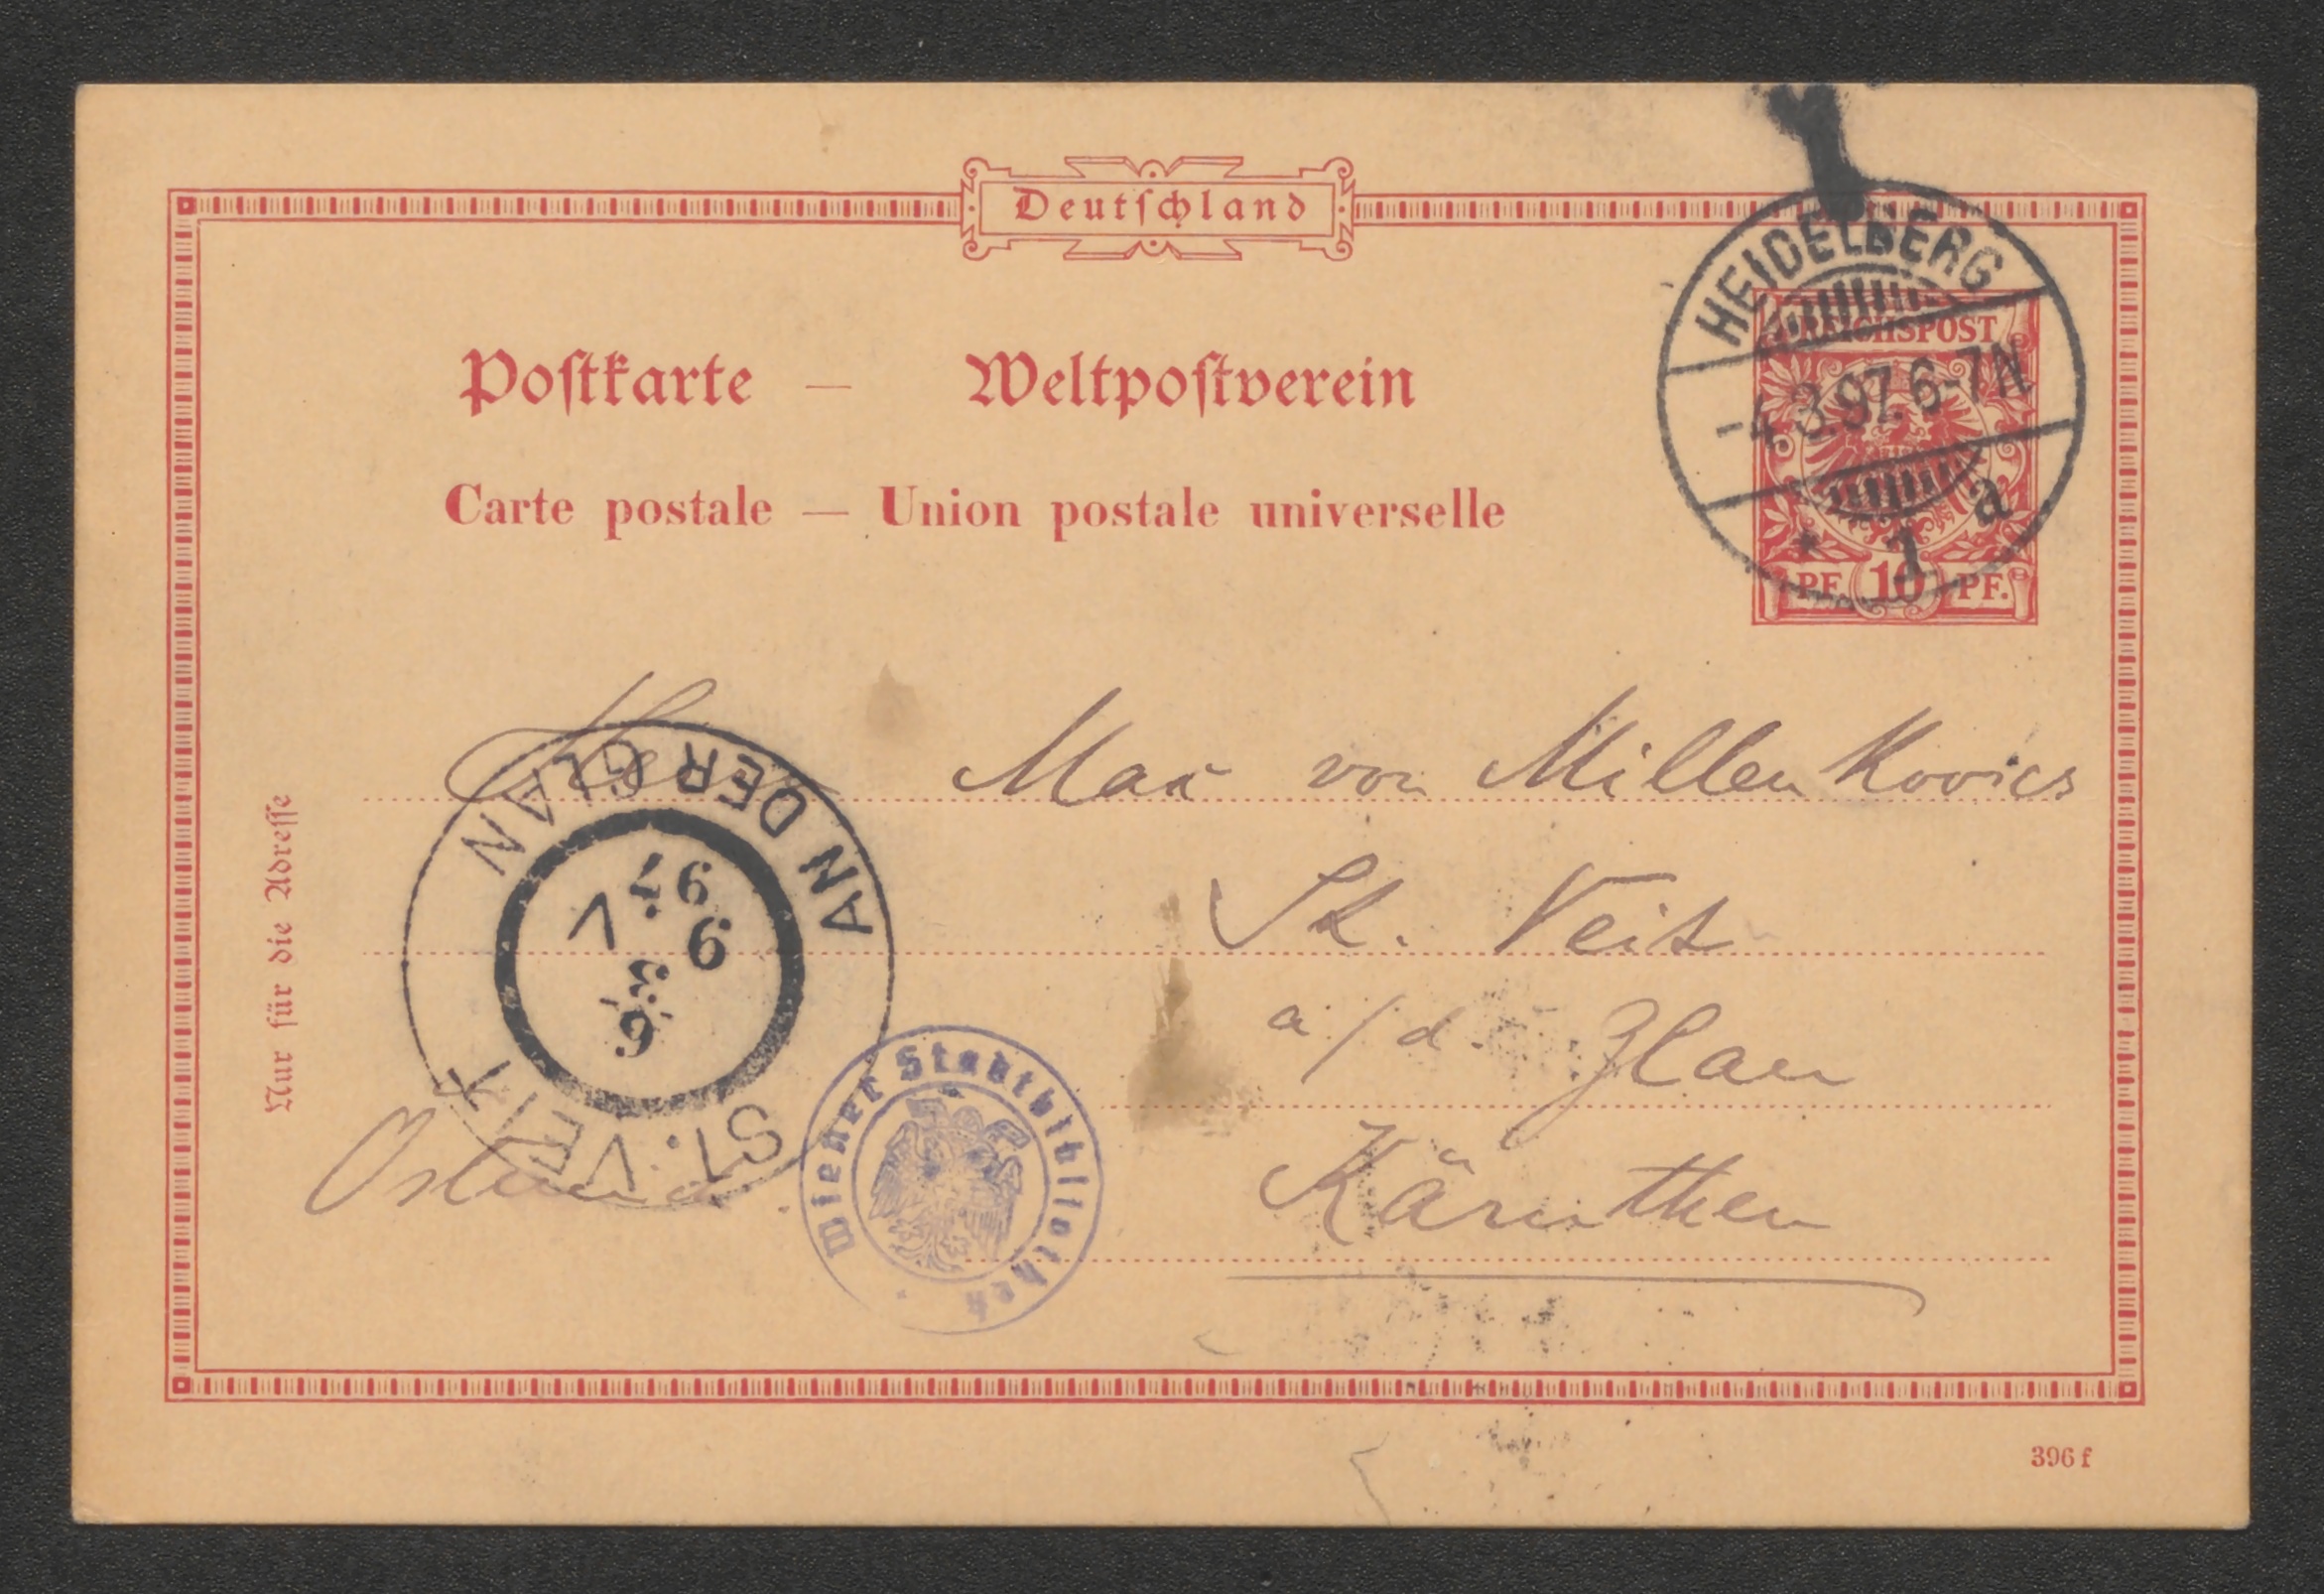 Deutschland
HEIDELBERG
REICHSPOST
-4.3.97.6-7N
* 1 a
PF. 10 PF.
Postkarte — Weltpostverein
Carte postale — Union postale universelle
Nur für die Adresse
Max von Millenkovics
St. Veit
a/d. Glan
Kärnthen
ST. VEIT
AN DER GLAN
6
3
9 V
97
Wiener Stadtbibliothek
396 f